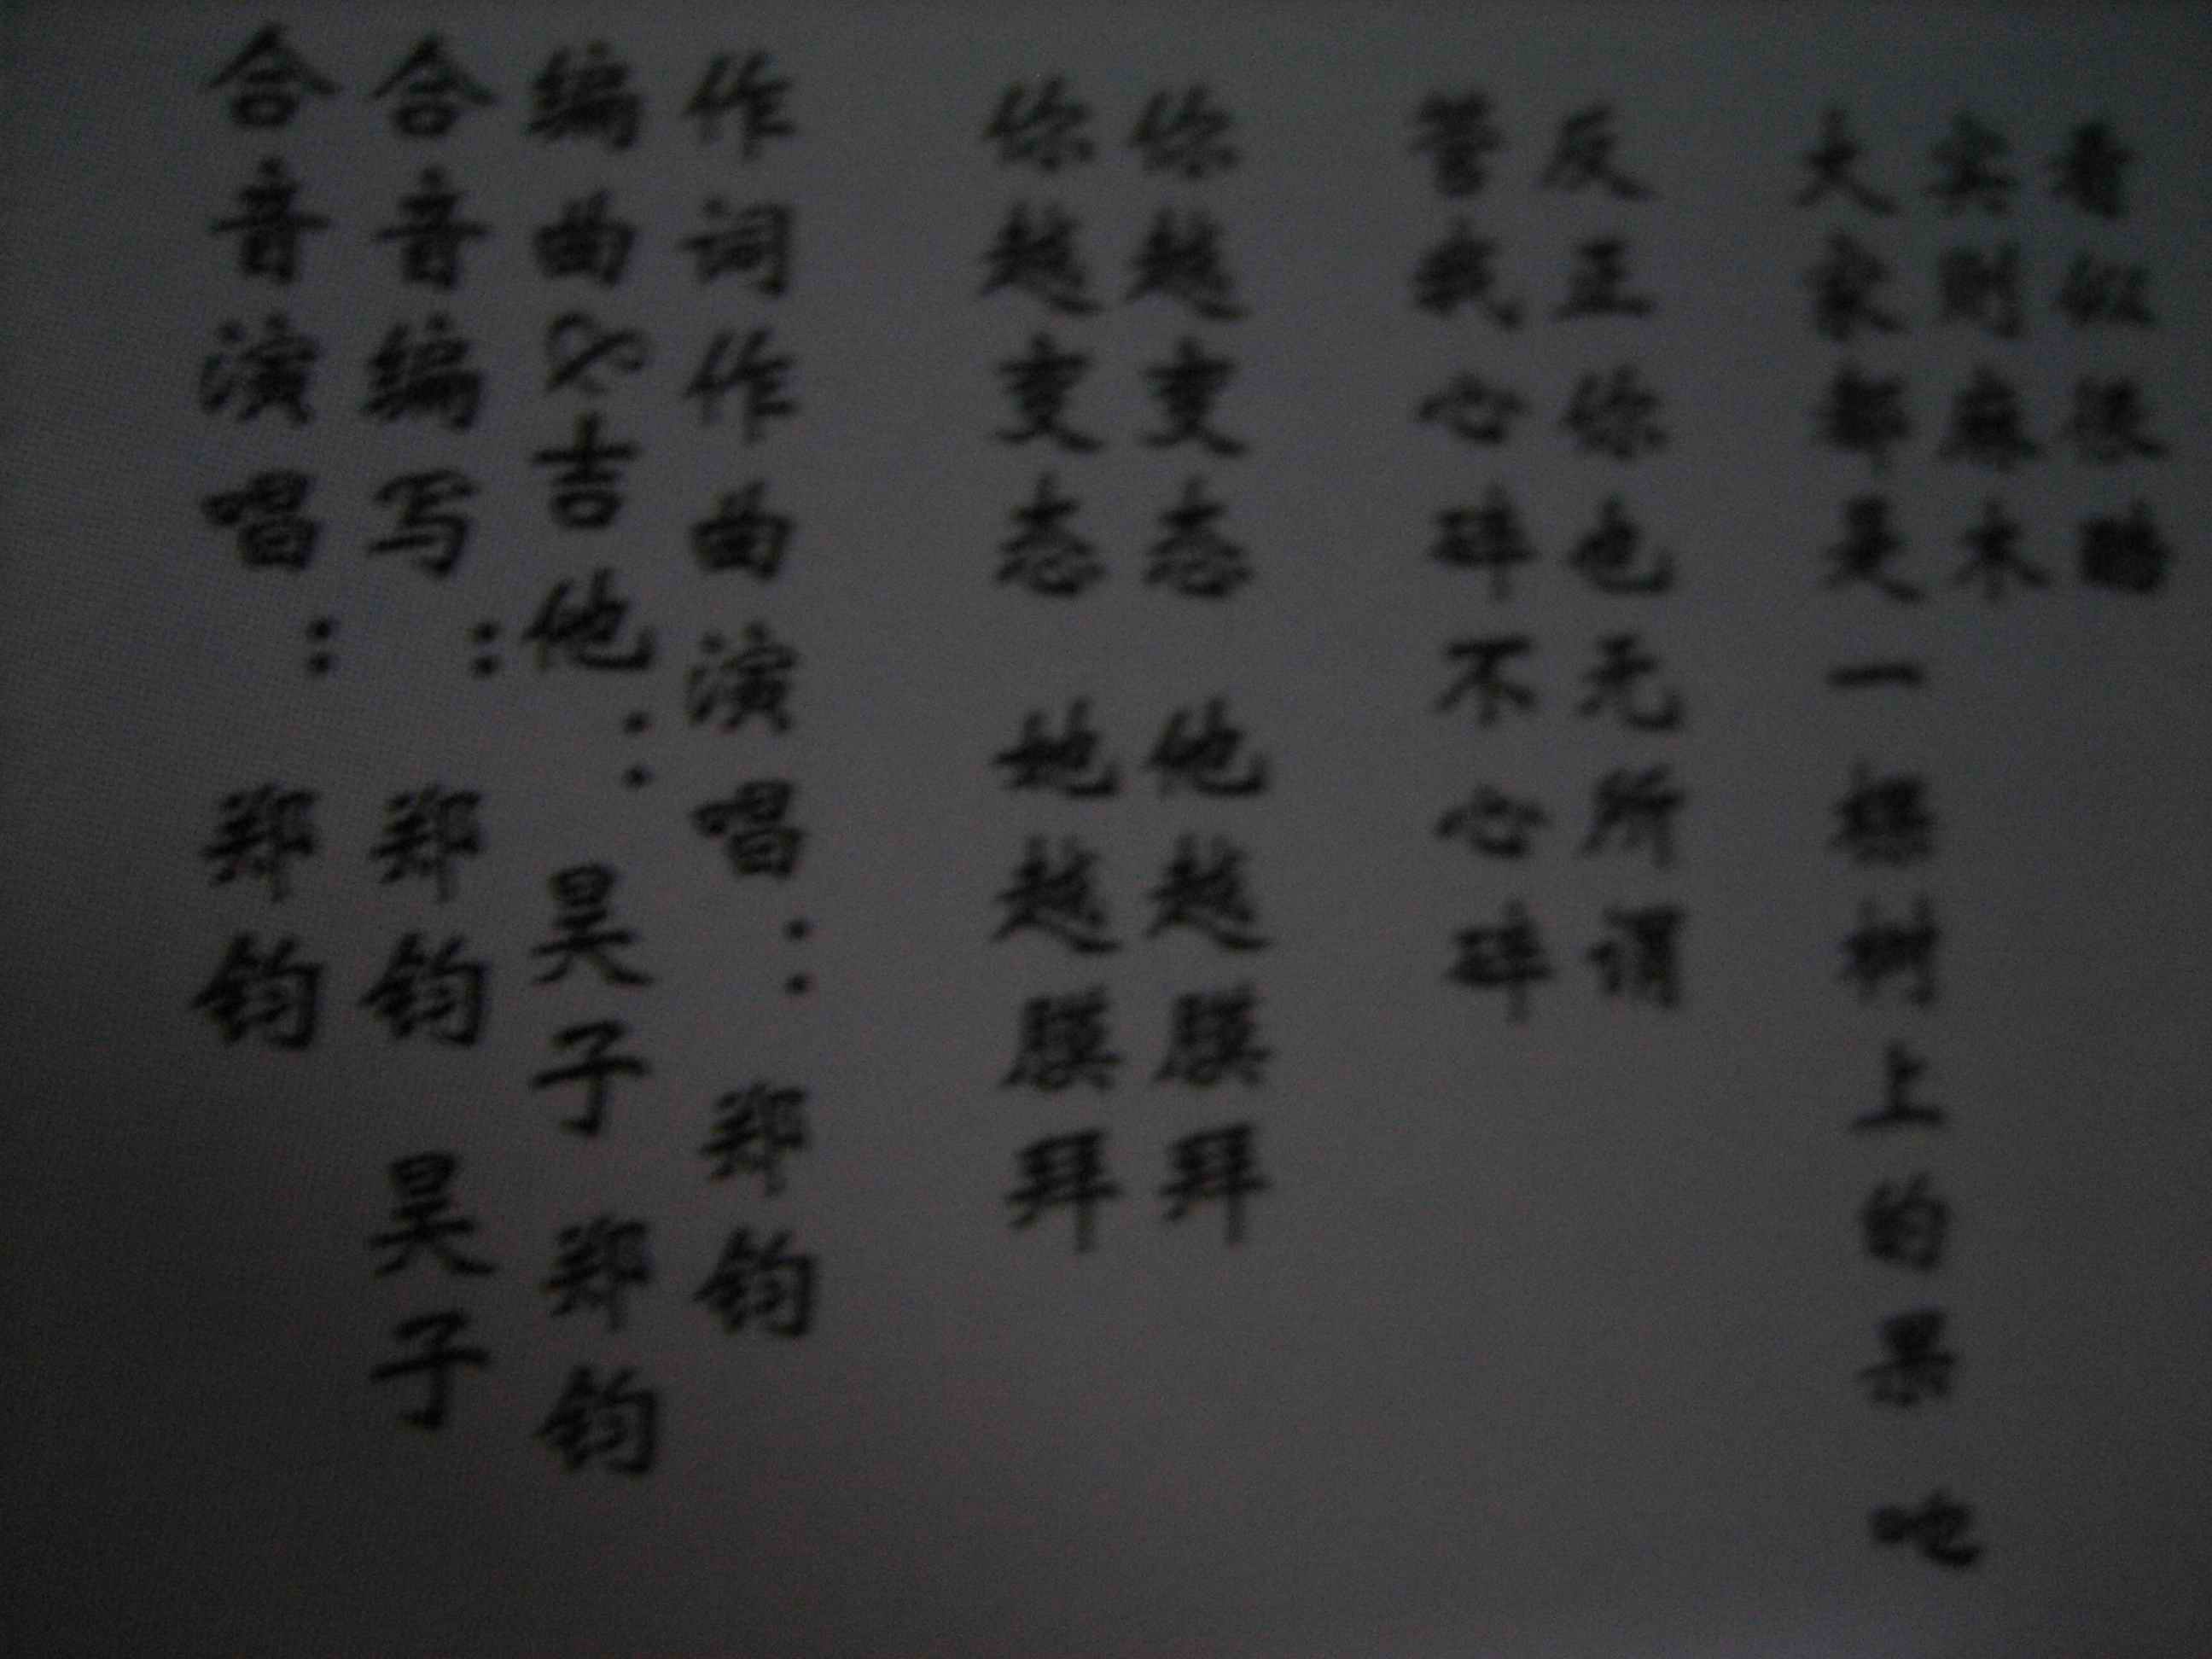 看似很酷
实则麻木
大家都是一棵树上的果 吔
反正你也无所谓
管我心碎不心碎
你越变态 他越膜拜
你越变态 她越膜拜
作词作曲演唱：郑钧
编曲&吉他：昊子 郑钧
合音编写：郑钧 昊子
合音演唱：郑钧